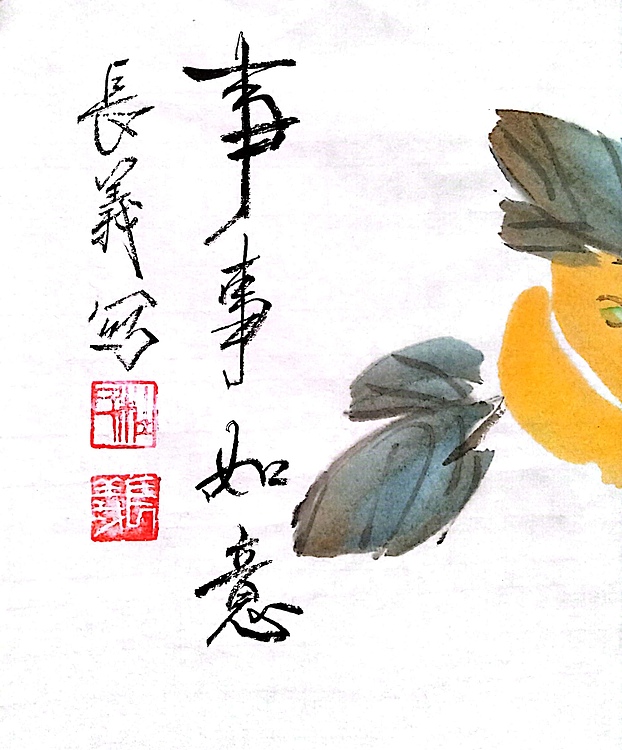 事事如意
長義寫